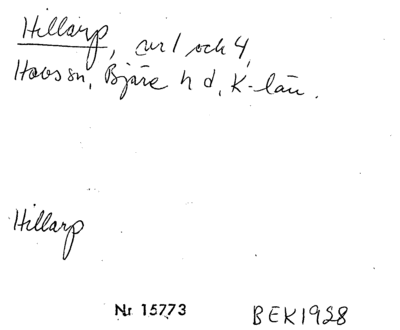 Hillarp, nr 1 och 4,
Hovs sn, Bjäre hd, K-län.
Hillarp
Nr 15773
BEK1928